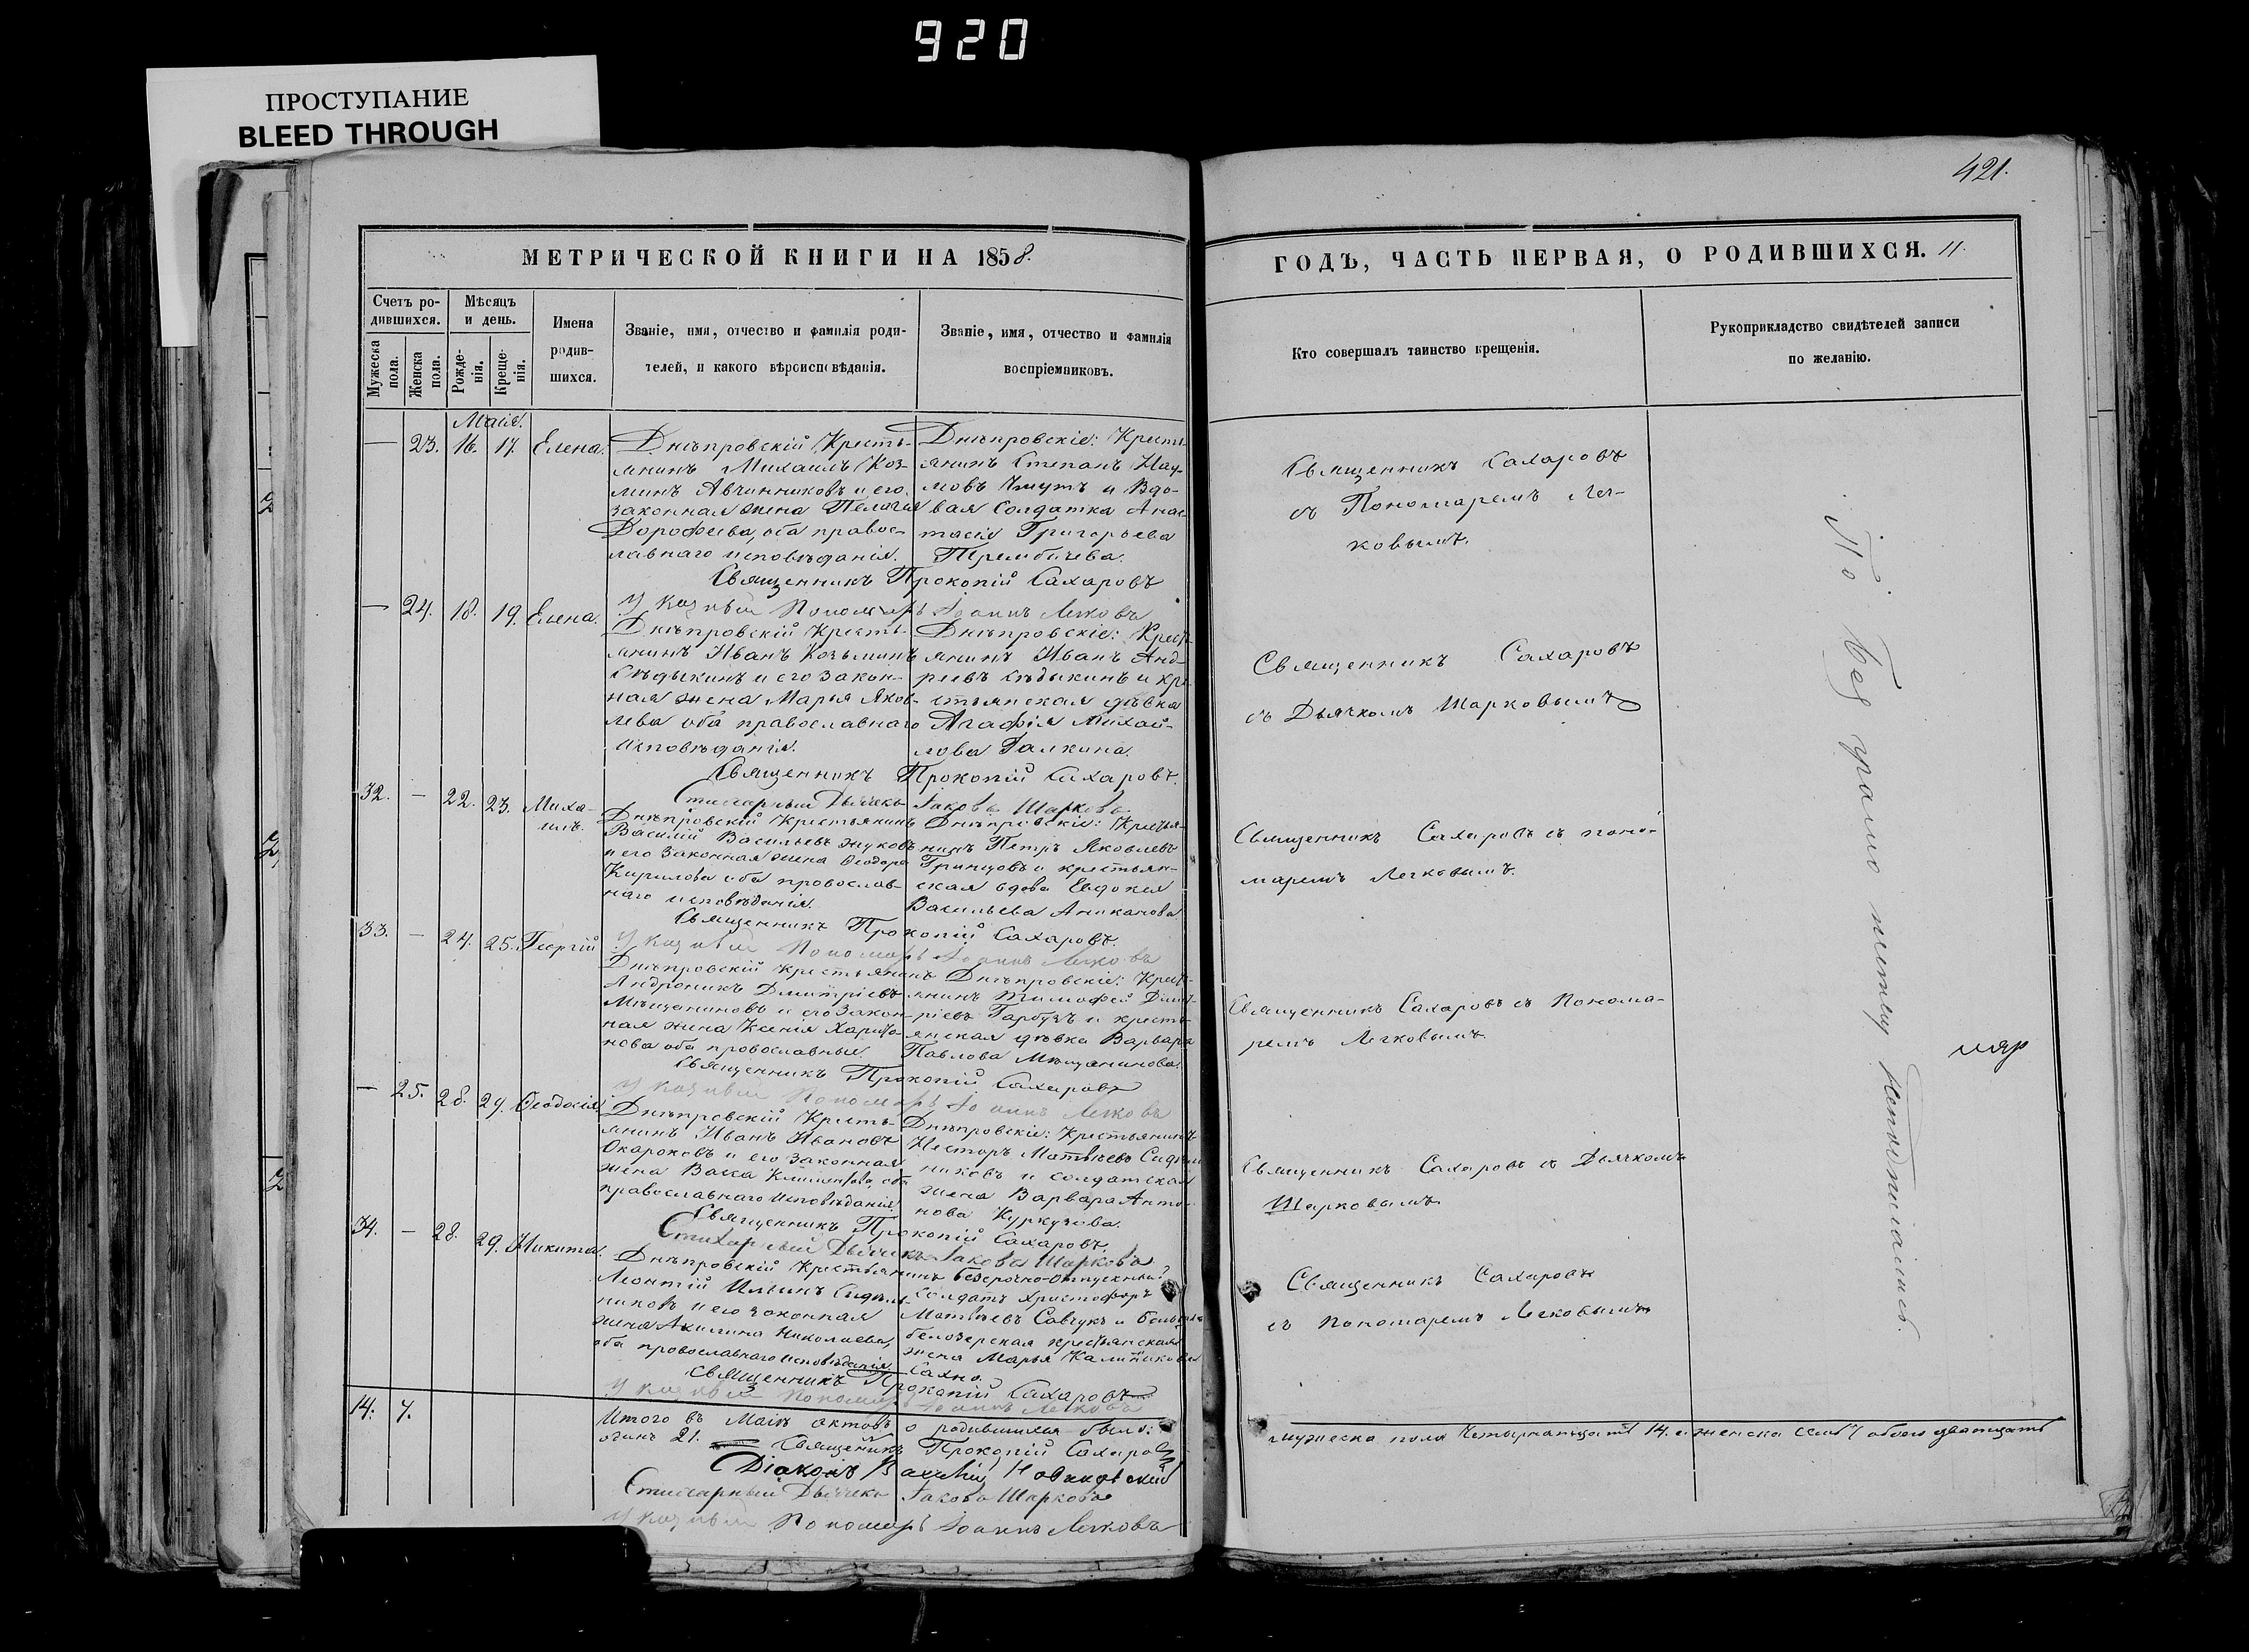 920
ПРОСТУПАНИЕ
BLEED THROUGH
421.
МЕТРИЧЕСКОЙ КНИГИ НА 1858.
ГОДЪ, ЧАСТЬ ПЕРВАЯ, О РОДИВШИХСЯ. 11.
Счетъ ро-
дившихся.
Мужеска
пола.
Женска
пола.
Мѣсяцъ
и день.
Рожде-
нія.
Креще-
нія.
Имена
родив-
шихся.
Званіе, имя, отчество и фамилія роди-
телей, и какого вѣроисповѣданія.
Званіе, имя, отчество и фамилія
воспріемниковъ.
Кто совершалъ таинство крещенія.
Рукоприкладство свидѣтелей записи
по желанію.
Маія.
— 23. 16. 17. Елена.
Днѣпровскій Кресть-
янинъ Михаилъ Коз-
минъ Авчинниковъ и его
законная жена Пелагія
Дорофеева, оба правос-
лавнаго исповѣданія.
Днѣпровскіе: Кресть-
янинъ Степанъ Нау-
мовъ и Вдо-
вая Солдатка Анас-
тасія Григорьева
Священникъ Сахаровъ
съ Пономаремъ Лег-
ковымъ.
Священникъ Прокопій Сахаровъ
Указный Пономарь Іоаннъ Легковъ
— 24. 18. 19. Елена.
Днѣпровскій Кресть-
янинъ Иванъ Козьминъ
Сѣдыкинъ и его закон-
ная жена Марья Яков-
лева оба православнаго
исповѣданія.
Днѣпровскіе: Крест-
янинъ Иванъ Анд-
реевъ Сѣдыкинъ и кре-
стьянская дѣвка
Агафія Михай-
лова Галкина.
Священникъ Сахаровъ
съ Дьячкомъ Шарковымъ
Священникъ Прокопій Сахаровъ.
Стихарный Дьячекъ Іаковъ Шарковъ
32. — 22. 23. Миха-
илъ.
Днѣпровскій Крестьянинъ
Василій Васильевъ Жуковъ
и его законная жена Ѳеодора
Кирилова оба православ-
наго исповѣданія.
Днѣпровскіе: Крестья-
нинъ Петръ Яковлевъ
Гринцовъ и крестьян-
ская вдова Евдокія
Васильева Аниканова.
Священникъ Сахаровъ съ поно-
маремъ Легковымъ.
Священникъ Прокопій Сахаровъ.
Указный Пономарь Іоаннъ Легковъ
33. — 24. 25. Георгій
Днѣпровскій крестьянинъ
Андроникъ Дмитріевъ
Мѣщаниновъ и его закон-
ная жена Ксенія Харито-
нова оба православные.
Днѣпровскіе: Крест-
янинъ Тимофей Димит-
ріевъ Гарбузъ и кресть-
янская дѣвка Варвара
Павлова Мѣщанинова.
Священникъ Сахаровъ съ Понома-
ремъ Легковымъ.
Священникъ Прокопій Сахаровъ
Указный Пономарь Іоаннъ Легковъ
— 25. 28. 29. Ѳеодосія
Днѣпровскій Кресть-
янинъ Иванъ Ивановъ
Окароковъ и его законная
жена Васса Климентова, оба
православнаго исповѣданія.
Днѣпровскіе: Крестьянинъ
Несторъ Матвѣевъ Сидѣль-
никовъ и солдатская
жена Варвара Анто-
нова Куркузова.
Священникъ Сахаровъ съ Дьячкомъ
Шарковымъ
Священникъ Прокопій Сахаровъ.
Стихарный Дьячекъ Іаковъ Шарковъ
34. — 28. 29. Никита.
Днѣпровскій Крестьянинъ
Леонтій Ильинъ Сидѣль-
никовъ и его законная
жена Акилина Николаева,
оба православнаго исповѣданія.
Безсрочно-отпускный
солдатъ Христофоръ
Матвѣевъ Савчукъ и
белозерская крестьянская
жена Марья Калиникова
Сахно.
Священникъ Сахаровъ
съ пономаремъ Легковымъ
Священникъ Прокопій Сахаровъ
Указный Пономарь Іоаннъ Легковъ
14. 7.
Итого въ Маіѣ актовъ о родившихся было:
мужеска пола четырнадцать 14. а женска семь 7 обоего двадцать
одинъ 21. Священникъ Прокопій Сахаровъ
Діаконъ
Стихарный Дьячекъ Іаковъ Шарковъ
Указный Пономарь Іоаннъ Легковъ